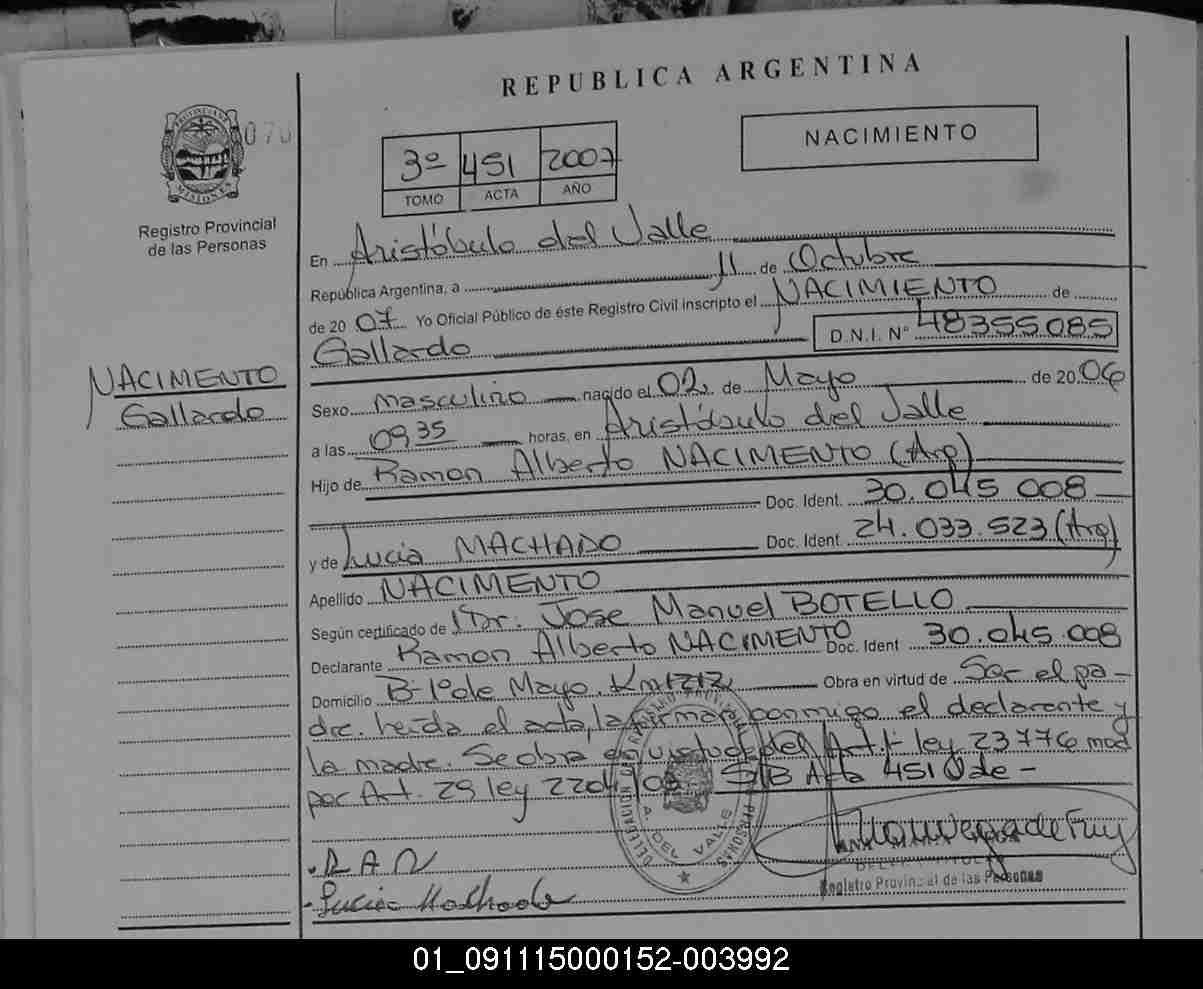 REPUBLICA ARGENTINA
PROVINCIA DE
MISIONES
070
Registro Provincial
de las Personas
3º 451 2007
TOMO ACTA AÑO
NACIMIENTO
En Aristóbulo del Valle
República Argentina, a 11 de Octubre
de 2007 Yo Oficial Público de éste Registro Civil inscripto el NACIMIENTO de
Gallardo D.N.I. Nº 48355085
NACIMENTO
Gallardo
Sexo masculino nacido el 02 de Mayo de 2006
a las 09 35 horas, en Aristóbulo del Valle
Hijo de Ramon Alberto NACIMENTO (Arg)
Doc. Ident. 30.045 008
y de Lucia MACHADO Doc. Ident. 24.033.523 (Arg)
Apellido NACIMENTO
Según certificado de Dr. Jose Manuel BOTELLO
Declarante Ramon Alberto NACIMENTO Doc. Ident 30.045.008
Domicilio B-1º de Mayo. Km 1212 Obra en virtud de Ser el pa-
dre. leida el acta, la firman conmigo el declarante y
la madre. Se obra en virtud del Art. 1- ley 23776 mod
por Art. 29 ley S/B Acta 451 Vale-
DELEGACION PERSONAS
A. DEL VALLE
R A N
Lucia Machado
Registro Provincial de las Personas
01_091115000152-003992